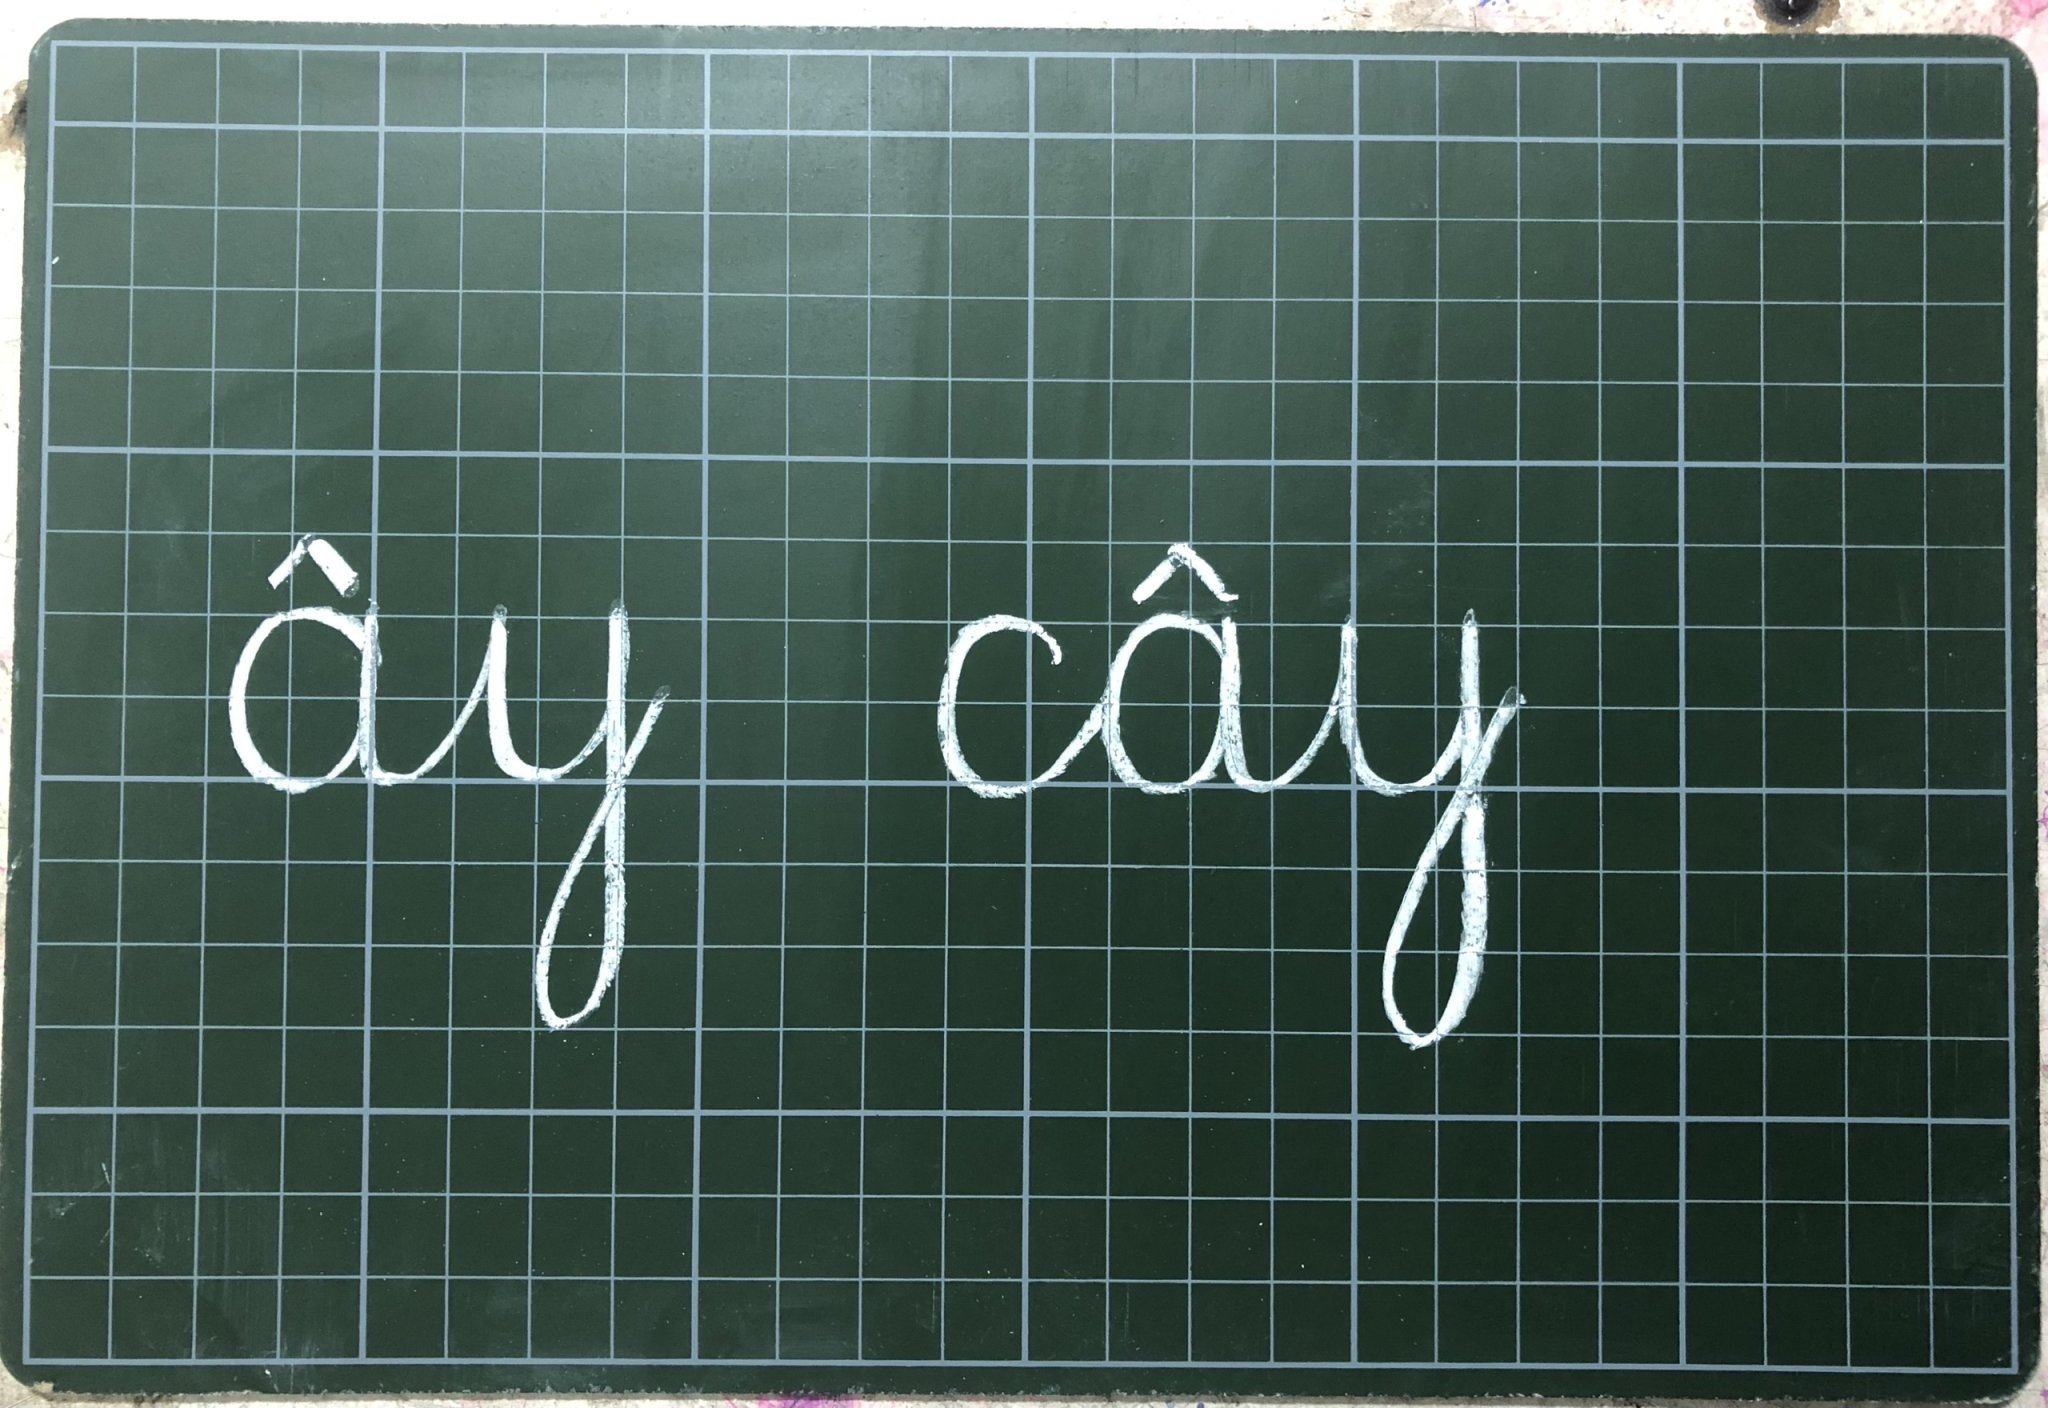 ây cây